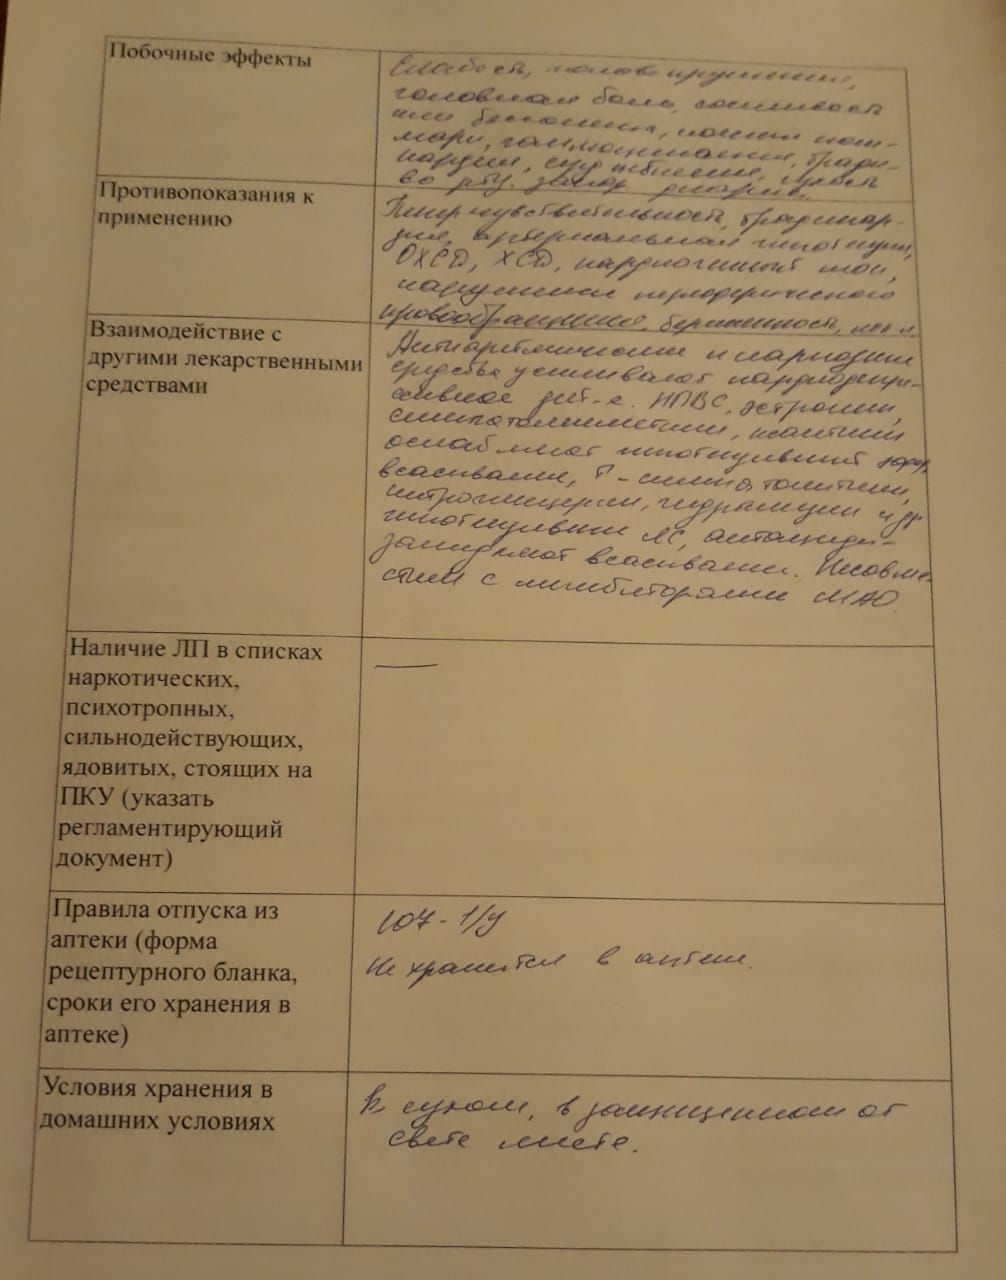 Побочные эффекты
Слабость, головокружение,
головная боль, сонливость
или бессонница, ночные кош-
мары, галлюцинации, бради-
кардия, сухость
во рту, запор, диарея.
Противопоказания к
применению
Гиперчувствительность, брадикар-
дия, артериальная гипотензия,
ОХСД, ХСД, кардиогенный шок,
нарушения периферического
кровообращения, беременность,
Взаимодействие с
другими лекарственными
средствами
Антиаритмические и
средства усиливают кардиодепре-
ссивное НПВС, эстрогены,
симпатомиметики,
ослабляют гипотензивный
всасывание,
нитроглицерин, гидралазин и др
гипотензивные ЛС, антациды-
замедляют всасывание. Несовме-
стим с ингибиторами МАО.
Наличие ЛП в списках
наркотических,
психотропных,
сильнодействующих,
ядовитых, стоящих на
ПКУ (указать
регламентирующий
документ)
Правила отпуска из
аптеки (форма
рецептурного бланка,
сроки его хранения в
аптеке)
107-1/у
Не хранится в аптеке.
Условия хранения в
домашних условиях
В сухом, в защищенном от
света месте.